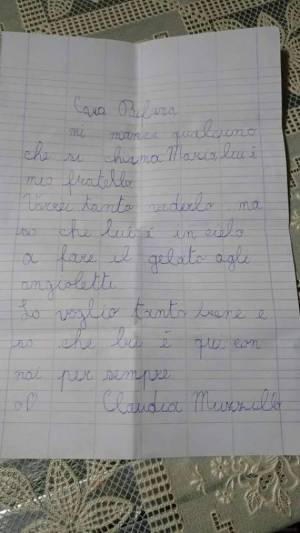 Cara Befana
mi manca qualcuno
che si chiama Mario lui è
mio fratello
Vorrei tanto vederlo ma
so che lui è in cielo
a fare il gelato agli
angioletti
Lo voglio tanto bene e
so che lui è qui con
noi per sempre
Claudia